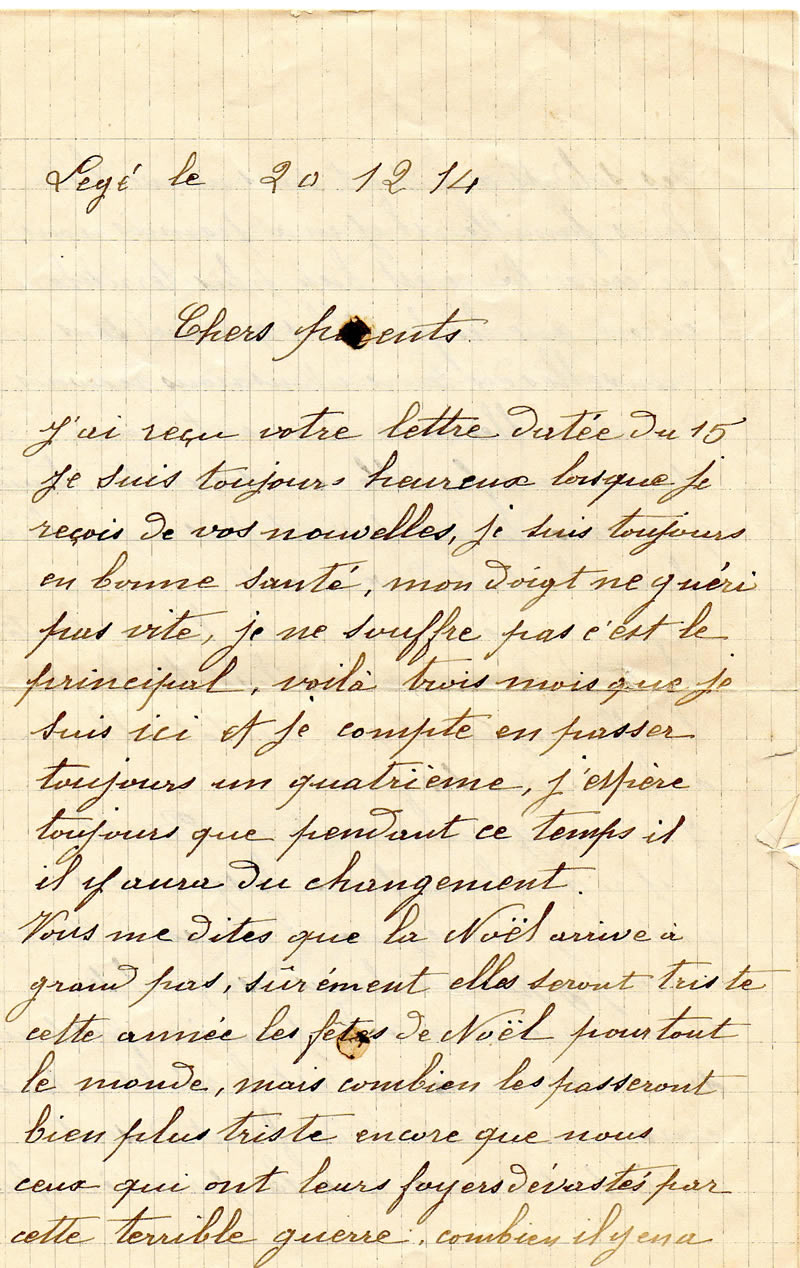 Legé le 20 12 14
Chers parents.
J'ai reçu votre lettre datée du 15
Je suis toujours heureux lorsque je
reçois de vos nouvelles, je suis toujours
en bonne santé, mon doigt ne guéri
pas vite, je ne souffre pas c'est le
principal, voilà trois mois que je
suis ici et je compte en passer
toujours un quatrième, j'espère
toujours que pendant ce temps il
il y aura du changement.
Vous me dites que la Noël arrive à
grand pas, sûrément elles seront triste
cette année les fêtes de Noël pour tout
le monde, mais combien les passeront
bien plus triste encore que nous
ceux qui ont leurs foyers dévastés par
cette terrible guerre, combien il y en a